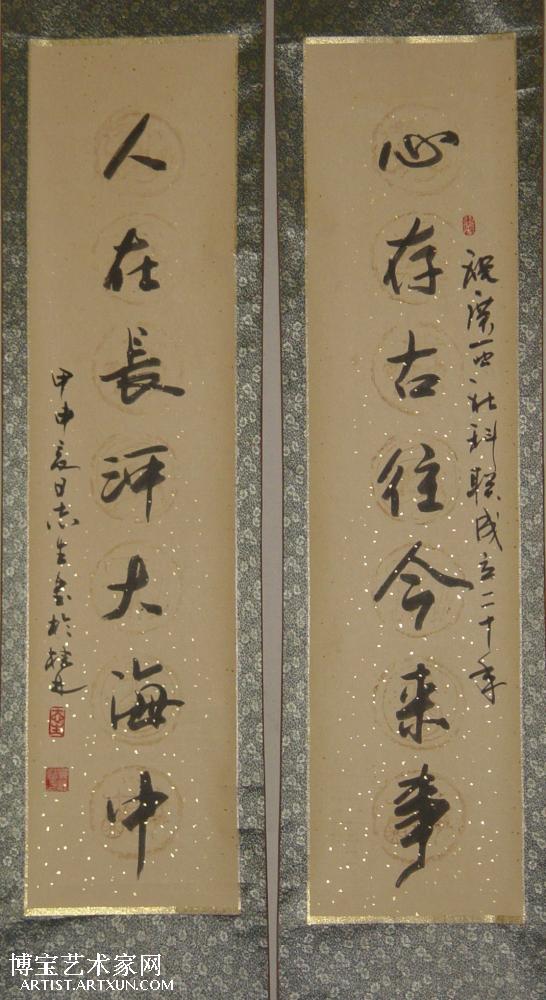 祝广西社科联成立二十年
心存古往今来事
人在長河大海中
甲申夏日志生书於桂
博宝艺术家网
ARTIST.ARTXUN.COM